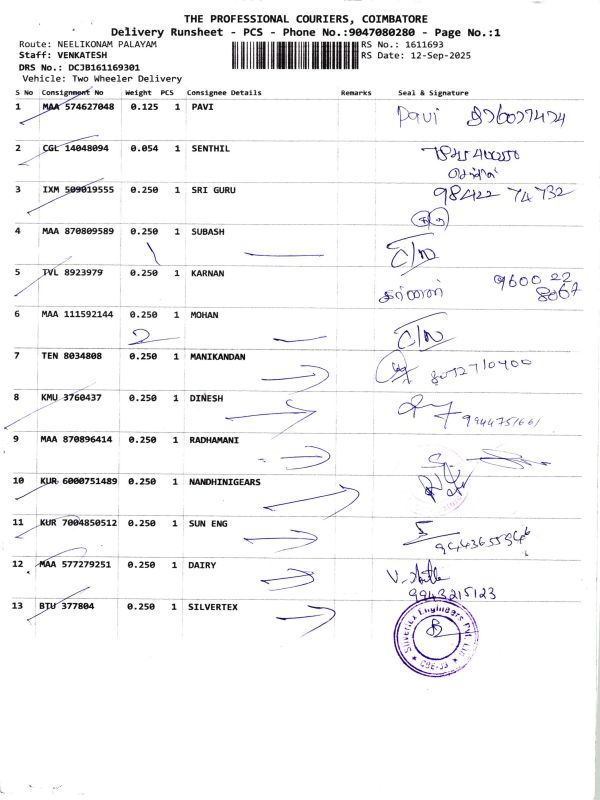 THE PROFESSIONAL COURIERS, COIMBATORE
Delivery Runsheet - PCS - Phone No.:9047080280 - Page No.:1
Route: NEELIKONAM PALAYAM RS No.: 1611693
Staff: VENKATESH RS Date: 12-Sep-2025
DRS No.: DCJB161169301
Vehicle: Two Wheeler Delivery
S No Consignment No Weight PCS Consignee Details Remarks Seal & Signature
1 MAA 574627048 0.125 1 PAVI Pavi
2 CGL 14048094 0.054 1 SENTHIL
3 IXM 509019555 0.250 1 SRI GURU 98422 74732
4 MAA 870809589 0.250 1 SUBASH C/N
1
5 TVL 8923979 0.250 1 KARNAN 9600 22
8067
6 MAA 111592144 0.250 1 MOHAN C/N
2
7 TEN 8034808 0.250 1 MANIKANDAN
8 KMU 3760437 0.250 1 DINESH
9944751661
9 MAA 870896414 0.250 1 RADHAMANI
10 KUR 6000751489 0.250 1 NANDHINIGEARS
11 KUR 7004850512 0.250 1 SUN ENG
12 MAA 577279251 0.250 1 DAIRY
9943215123
13 BTU 377804 0.250 1 SILVERTEX
Silvertex Engineers Pvt. Ltd